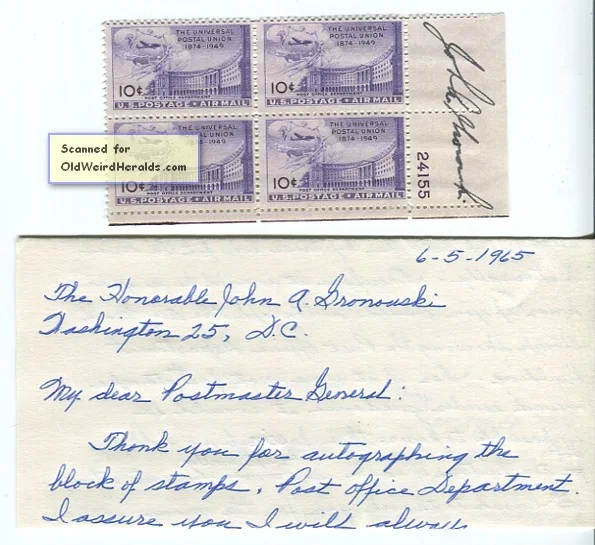 THE UNIVERSAL
POSTAL UNION
1874-1949
10¢
POST OFFICE DEPARTMENT
U.S. POSTAGE • AIR MAIL
THE UNIVERSAL
POSTAL UNION
1874-1949
10¢
POST OFFICE DEPARTMENT
U.S. POSTAGE • AIR MAIL
THE UNIVERSAL
POSTAL UNION
1874-1949
10¢
POST OFFICE DEPARTMENT
U.S. POSTAGE • AIR MAIL
THE UNIVERSAL
POSTAL UNION
1874-1949
10¢
POST OFFICE DEPARTMENT
U.S. POSTAGE • AIR MAIL
24155
Scanned for
OldWeirdHeralds.com
6-5-1965
The Honorable John A. Gronouski
Washington 25, D.C.
My dear Postmaster General:
Thank you for autographing the
block of stamps, Post Office Department.
I assure you I will